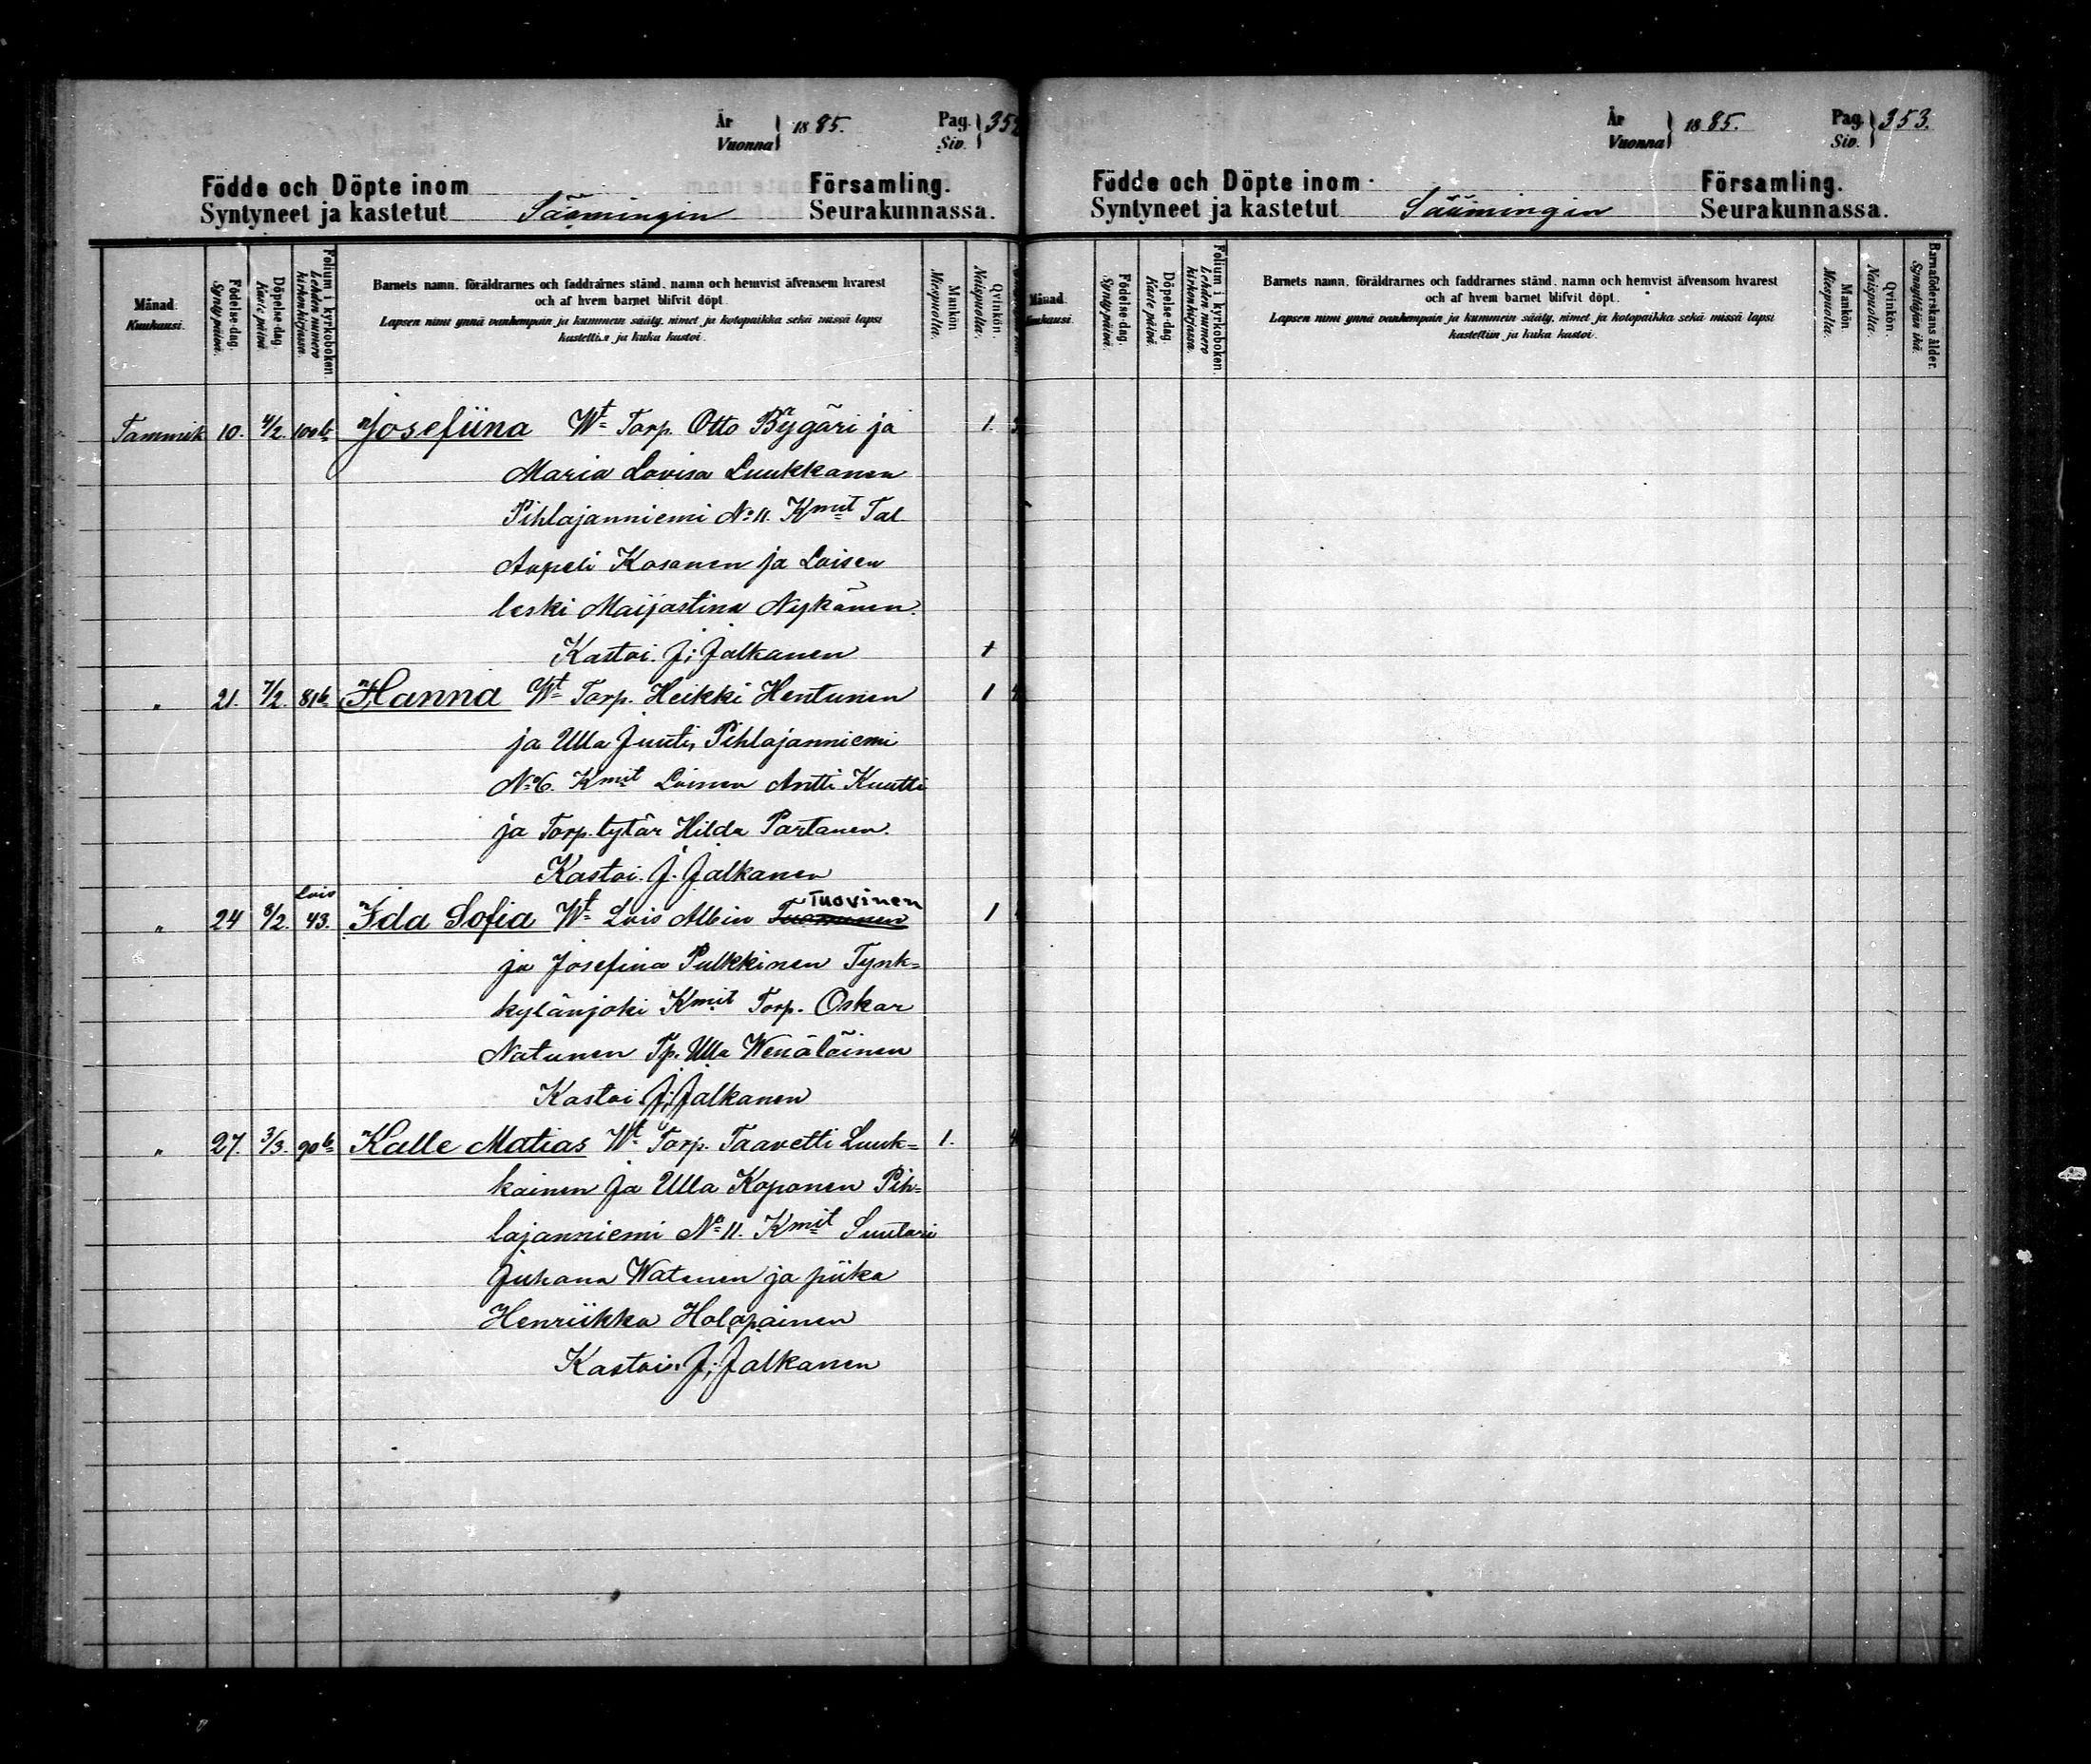 År Vuonna 1885. Pag. Siv. 352
Födde och Döpte inom Församling.
Syntyneet ja kastetut Säämingin Seurakunnassa.
Månad. Kuukausi.
Födelse-dag. Synty päivä.
Döpelse-dag. Kaste päivä.
Folium i kyrkoboken. Lehden numero kirkonkirjassa.
Barnets namn, föräldrarnes och faddrarnes stånd, namn och hemvist äfvensom hvarest
och af hvem barnet blifvit döpt.
Lapsen nimi ynnä vanhempain ja kummein sääty, nimet ja kotopaikka sekä missä lapsi
kastettiin ja kuka kastoi.
Mankön. Miespuolia.
Qvinkön. Naispuolia.
Tammik 10. 4/2 100b Josefiina Wt Torp. Otto Bygäri ja 1.
Maria Lovisa Luukkanen
Pihlajanniemi No 11. Kmit Tal.
Aapeli Kosonen ja Loisen
leski Maijastina Nykänen.
Kastoi. J. Jalkanen +
" 21. 7/2. 81b Hanna Wt Torp. Heikki Hentunen 1
ja Ulla Juuti, Pihlajanniemi
No 6. Kmit Loinen Antti Kuutti
ja Torp. tytär Hilda Partanen.
Kastoi. J. Jalkanen
Lois Tuovinen
" 24 8/2. 43. Ida Sofia Wt Lois Albin 1
ja Josefina Pulkkinen Tynk=
kylänjoki Kmit Torp. Oskar
Natunen Tp. Ulla Wenäläinen
Kastoi J. Jalkanen
" 27. 3/3. 90b Kalle Matias Wt Torp. Taavetti Luuk= 1.
kainen ja Ulla Koponen Pih=
lajanniemi No 11. Kmit Suutari
Juhana Watanen ja piika
Henriikka Holopainen
Kastoi. J. Jalkanen
År Vuonna 1885. Pag. Siv. 353.
Födde och Döpte inom Församling.
Syntyneet ja kastetut Säämingin Seurakunnassa.
Månad. Kuukausi.
Födelse-dag. Synty päivä.
Döpelse-dag. Kaste päivä.
Folium i kyrkoboken. Lehden numero kirkonkirjassa.
Barnets namn, föräldrarnes och faddrarnes stånd, namn och hemvist äfvensom hvarest
och af hvem barnet blifvit döpt.
Lapsen nimi ynnä vanhempain ja kummein sääty, nimet ja kotopaikka sekä missä lapsi
kastettiin ja kuka kastoi.
Mankön. Miespuolia.
Qvinkön. Naispuolia.
Barnaföderskans ålder. Synnyttäjän ikä.